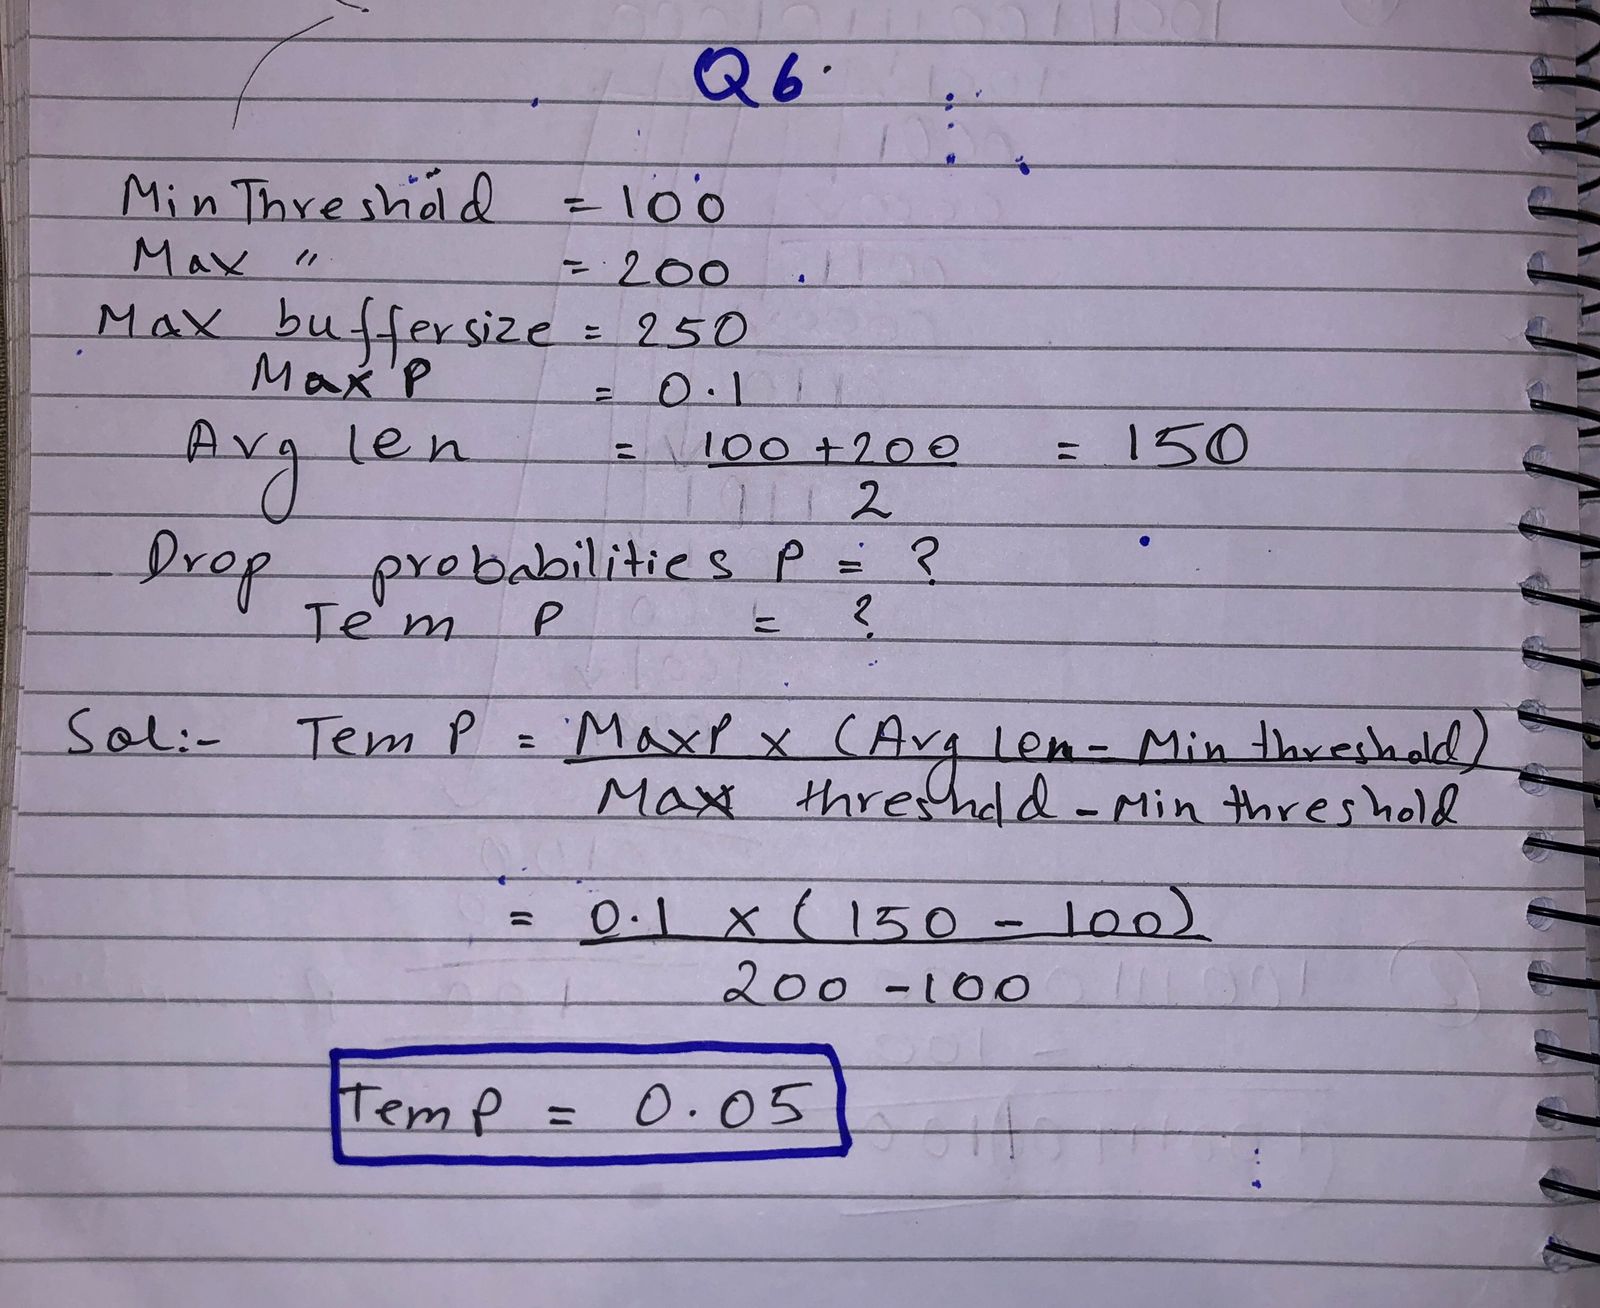 Q6.
Min Threshold = 100
Max " = 200
Max buffersize = 250
Max P = 0.1
Avg len = 100 + 200 = 150
2
Drop probabilities P = ?
Tem P = ?
Sol:- Tem P = MaxP x (Avg Len - Min threshold)
Max threshold - Min threshold
= 0.1 x (150 - 100)
200 - 100
Tem P = 0.05